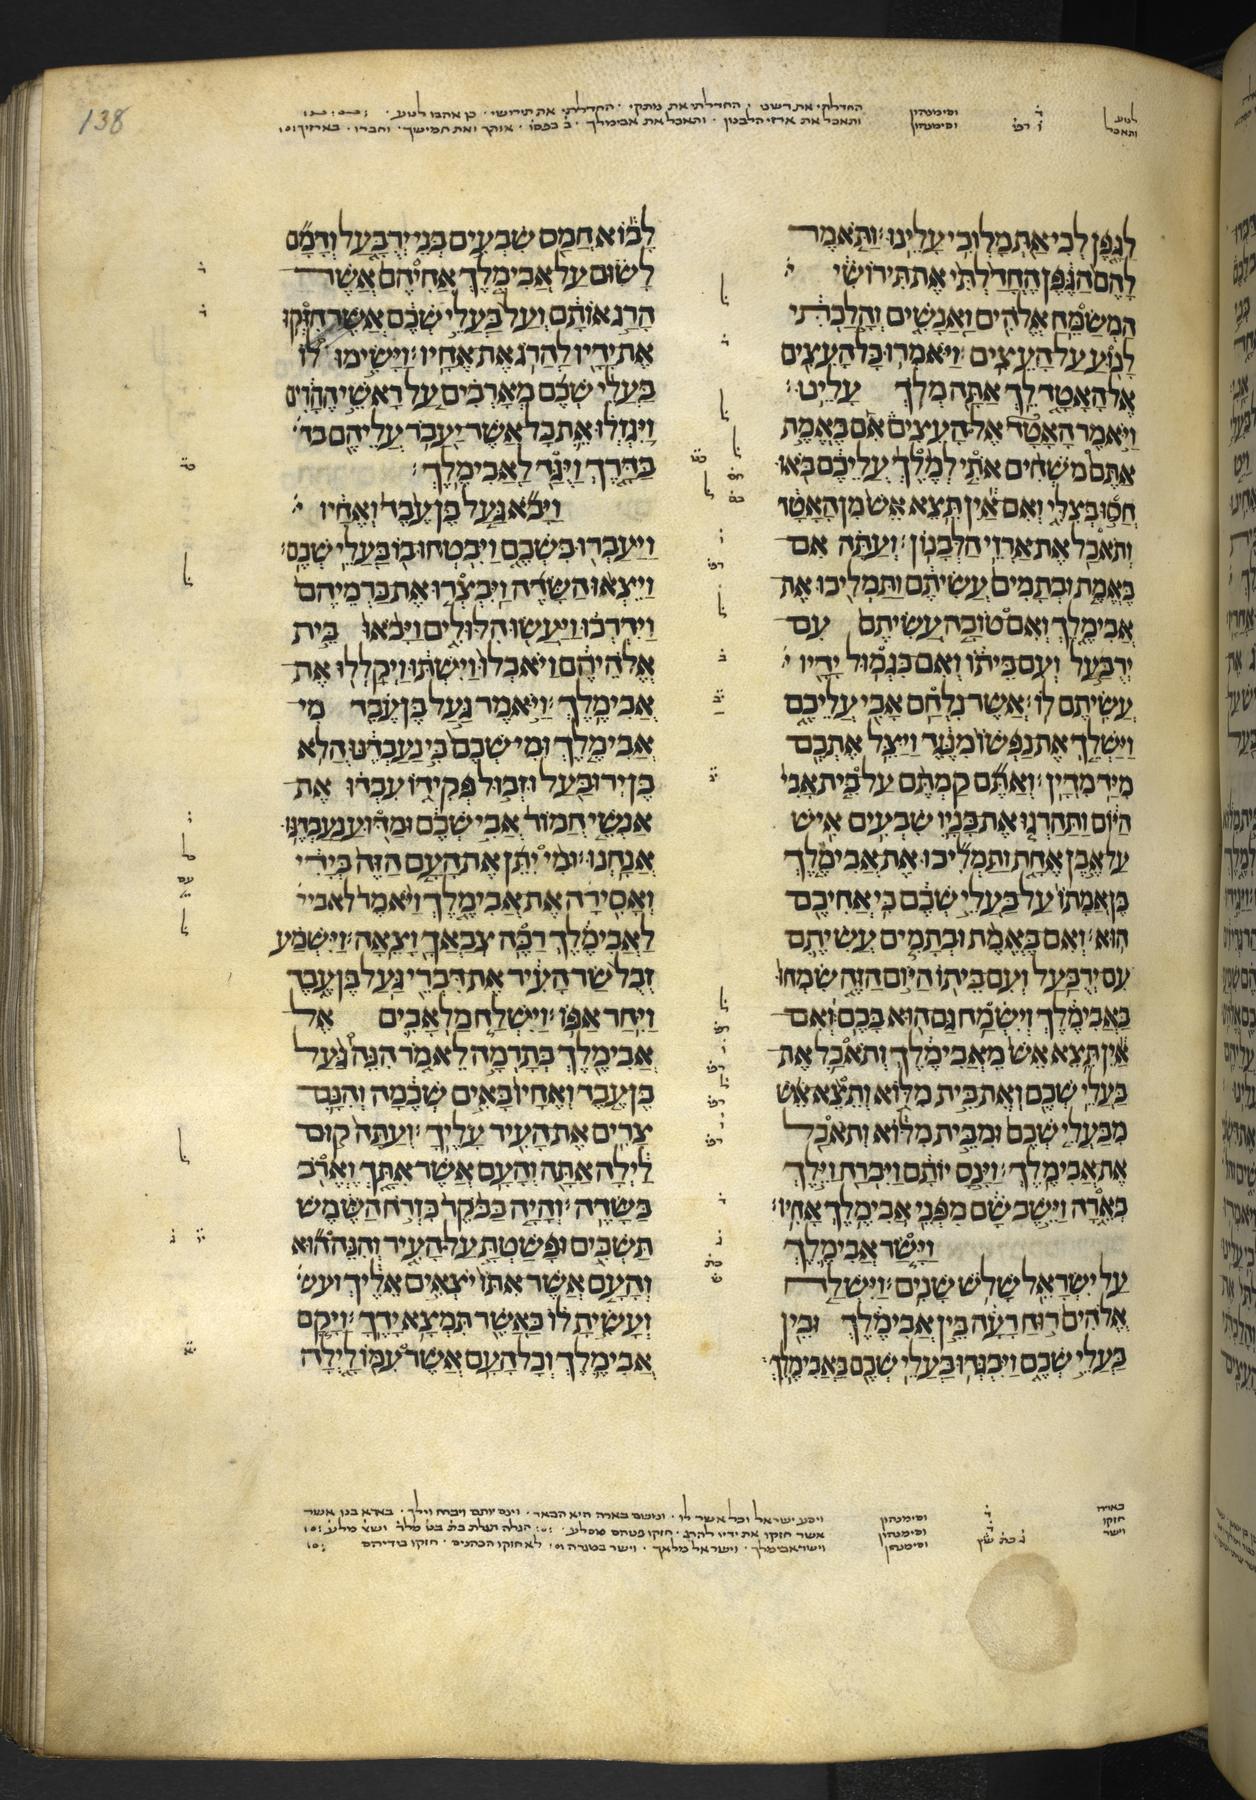 138
לנוע ד̇ וסימנהון החדלתי את דשני · החדלתי את מתקי · החדלתי את תירושי · כן אהבו לנוע ·
ותאכל ו̇ רפ̇ וסימנהון ותאכל את ארזי הלבנון · ותאכל את אבימלך · ב̇ בפסו̇ · אותך ואת חמישך · וחברו · באר׳
לַגֶּפֶן לְכִי אַתְּ מָלְכִי עָלֵינוּ׃ וַתֹּאמֶר
לָהֶם הַגֶּפֶן הֶחֳדַלְתִּי אֶת תִּירוֹשִׁי
הַמְשַׂמֵּחַ אֱלֹהִים וַאֲנָשִׁים וְהָלַכְתִּי
לָנוּעַ עַל הָעֵצִים׃ וַיֹּאמְרוּ כָל הָעֵצִים
אֶל הָאָטָד לֵךְ אַתָּה מְלָךְ עָלֵינוּ׃
וַיֹּאמֶר הָאָטָד אֶל הָעֵצִים אִם בֶּאֱמֶת
אַתֶּם מֹשְׁחִים אֹתִי לְמֶלֶךְ עֲלֵיכֶם בֹּאוּ
חֲסוּ בְצִלִּי וְאִם אַיִן תֵּצֵא אֵשׁ מִן הָאָטָד
וְתֹאכַל אֶת אַרְזֵי הַלְּבָנוֹן׃ וְעַתָּה אִם
בֶּאֱמֶת וּבְתָמִים עֲשִׂיתֶם וַתַּמְלִיכוּ אֶת
אֲבִימֶלֶךְ וְאִם טוֹבָה עֲשִׂיתֶם עִם
יְרֻבַּעַל וְעִם בֵּיתוֹ וְאִם כִּגְמוּל יָדָיו
עֲשִׂיתֶם לוֹ׃ אֲשֶׁר נִלְחַם אָבִי עֲלֵיכֶם
וַיַּשְׁלֵךְ אֶת נַפְשׁוֹ מִנֶּגֶד וַיַּצֵּל אֶתְכֶם
מִיַּד מִדְיָן׃ וְאַתֶּם קַמְתֶּם עַל בֵּית אָבִי
הַיּוֹם וַתַּהַרְגוּ אֶת בָּנָיו שִׁבְעִים אִישׁ
עַל אֶבֶן אֶחָת וַתַּמְלִיכוּ אֶת אֲבִימֶלֶךְ
בֶּן אֲמָתוֹ עַל בַּעֲלֵי שְׁכֶם כִּי אֲחִיכֶם
הוּא׃ וְאִם בֶּאֱמֶת וּבְתָמִים עֲשִׂיתֶם
עִם יְרֻבַּעַל וְעִם בֵּיתוֹ הַיּוֹם הַזֶּה שִׂמְחוּ
בַּאֲבִימֶלֶךְ וְיִשְׂמַח גַּם הוּא בָּכֶם׃ וְאִם
אַיִן תֵּצֵא אֵשׁ מֵאֲבִימֶלֶךְ וְתֹאכַל אֶת
בַּעֲלֵי שְׁכֶם וְאֶת בֵּית מִלּוֹא וְתֵצֵא אֵשׁ
מִבַּעֲלֵי שְׁכֶם וּמִבֵּית מִלּוֹא וְתֹאכַל
אֶת אֲבִימֶלֶךְ׃ וַיָּנָס יוֹתָם וַיִּבְרַח וַיֵּלֶךְ
בְּאֵרָה וַיֵּשֶׁב שָׁם מִפְּנֵי אֲבִימֶלֶךְ אָחִיו׃
וַיָּשַׂר אֲבִימֶלֶךְ
עַל יִשְׂרָאֵל שָׁלֹשׁ שָׁנִים׃ וַיִּשְׁלַח
אֱלֹהִים רוּחַ רָעָה בֵּין אֲבִימֶלֶךְ וּבֵין
בַּעֲלֵי שְׁכֶם וַיִּבְגְּדוּ בַעֲלֵי שְׁכֶם בַּאֲבִימֶלֶךְ׃
לָבוֹא חֲמַס שִׁבְעִים בְּנֵי יְרֻבָּעַל וְדָמָם
לָשׂוּם עַל אֲבִימֶלֶךְ אֲחִיהֶם אֲשֶׁר
הָרַג אוֹתָם וְעַל בַּעֲלֵי שְׁכֶם אֲשֶׁר חִזְּקוּ
אֶת יָדָיו לַהֲרֹג אֶת אֶחָיו׃ וַיָּשִׂימוּ לוֹ
בַעֲלֵי שְׁכֶם מְאָרְבִים עַל רָאשֵׁי הֶהָרִים
וַיִּגְזְלוּ אֵת כָּל אֲשֶׁר יַעֲבֹר עֲלֵיהֶם בד׳
בַּדָּרֶךְ וַיֻּגַּד לַאֲבִימֶלֶךְ׃
וַיָּבֹא גַּעַל בֶּן עֶבֶד וְאֶחָיו
וַיַּעַבְרוּ בִּשְׁכֶם וַיִּבְטְחוּ בוֹ בַּעֲלֵי שְׁכֶם׃
וַיֵּצְאוּ הַשָּׂדֶה וַיִּבְצְרוּ אֶת כַּרְמֵיהֶם
וַיִּדְרְכוּ וַיַּעֲשׂוּ הִלּוּלִים וַיָּבֹאוּ בֵּית
אֱלֹהֵיהֶם וַיֹּאכְלוּ וַיִּשְׁתּוּ וַיְקַלְלוּ אֶת
אֲבִימֶלֶךְ׃ וַיֹּאמֶר גַּעַל בֶּן עֶבֶד מִי
אֲבִימֶלֶךְ וּמִי שְׁכֶם כִּי נַעַבְדֶנּוּ הֲלֹא
בֶן יְרוּבַּעַל וּזְבוּל פְּקִידוֹ עִבְדוּ אֶת
אַנְשֵׁי חֲמוֹר אֲבִי שְׁכֶם וּמַדּוּעַ נַעַבְדֶנּוּ
אֲנָחְנוּ׃ וּמִי יִתֵּן אֶת הָעָם הַזֶּה בְּיָדִי
וְאָסִירָה אֶת אֲבִימֶלֶךְ וַיֹּאמֶר לאבי׳
לַאֲבִימֶלֶךְ רַבֶּה צְבָאֲךָ וָצֵאָה׃ וַיִּשְׁמַע
זְבֻל שַׂר הָעִיר אֶת דִּבְרֵי גַּעַל בֶּן עֶבֶד
וַיִּחַר אַפּוֹ׃ וַיִּשְׁלַח מַלְאָכִים אֶל
אֲבִימֶלֶךְ בְּתָרְמָה לֵאמֹר הִנֵּה גַעַל
בֶּן עֶבֶד וְאֶחָיו בָּאִים שְׁכֶמָה וְהִנָּם
צָרִים אֶת הָעִיר עָלֶיךָ׃ וְעַתָּה קוּם
לַיְלָה אַתָּה וְהָעָם אֲשֶׁר אִתָּךְ וֶאֱרֹב
בַּשָּׂדֶה׃ וְהָיָה בַבֹּקֶר כִּזְרֹחַ הַשֶּׁמֶשׁ
תַּשְׁכִּים וּפָשַׁטְתָּ עַל הָעִיר וְהִנֵּה הוּא
וְהָעָם אֲשֶׁר אִתּוֹ יֹצְאִים אֵלֶיךָ ועש׳
וְעָשִׂיתָ לּוֹ כַּאֲשֶׁר תִּמְצָא יָדֶךָ׃ וַיָּקָם
אֲבִימֶלֶךְ וְכָל הָעָם אֲשֶׁר עִמּוֹ לָיְלָה
בארה ד̇ וסימנהון ויסע ישראל וכל אשר לו · ומשם בארה היא הבאר · וינס יותם ויברח וילך · בארא בנו אשר
חזקו ד̇ וסימנהון אשר חזקו את ידיו להרג · חזקו פטהם מסלע ·
וישר ג̇ וסימנהון וישר אבימלך · וישר אל מלאך · וישר במגרה · לא חזקו הכהנים · חזקו בידיהם